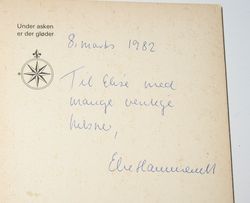 Under asken
er der gløder
8. marts 1982
Til Elise med
mange venlige
hilsner,
Else